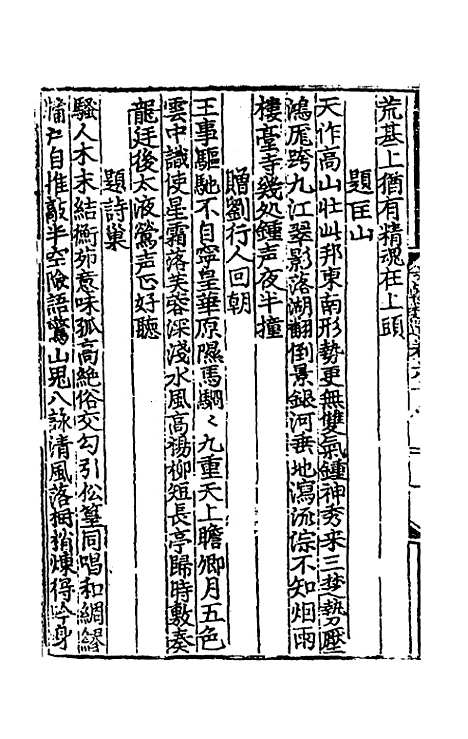 荒基上猶有精魂在上頭
題匡山
天作高山壯此邦東南形勢更無雙氣鍾神秀来三楚勢壓
鴻厖跨九江翠影落湖翻倒景銀河垂地瀉流淙不知烟雨
樓臺寺幾処鍾声夜半撞
贈劉行人回朝
王事驅馳不自寧皇華原隰馬駉〻九重天上瞻卿月五色
雲中識使星霜落芙蓉深淺水風高楊柳短長亭歸時敷奏
龍廷後太液鶯声正好聽
題詩巢
騷人木末結衡茆意味孤高絶俗交勾引松篁同唱和綢繆
自推敲半空險語驚山鬼八詠清風落桐梢煉得吟身